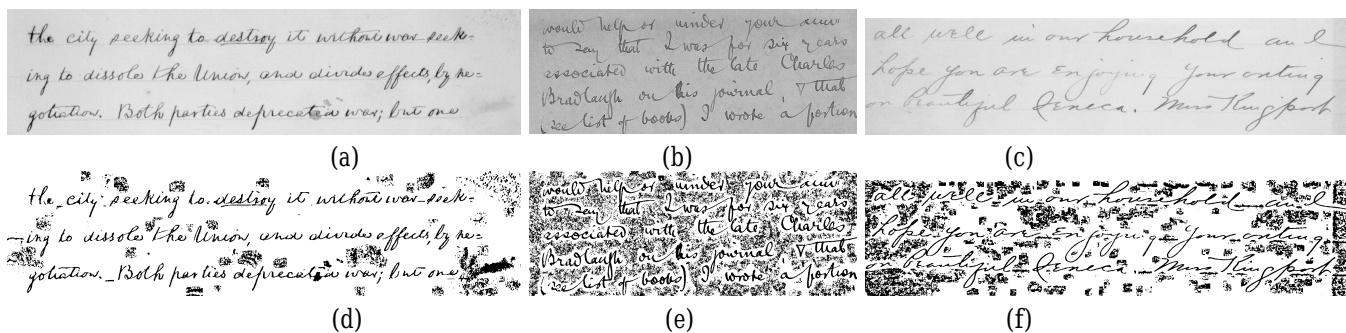 the city seeking to destroy it without war seek-
ing to dissole the Union, and divide effects, by ne-
gotiation. Both parties deprecated war; but one
(a)
would help or hinder your
to say that I was for six years
associated with the late Charles
Bradlaugh on his journal, & that
(see list of books) I wrote a portion
(b)
all well in our household and
hope you are enjoying your outing
on beautiful Seneca. Miss Kingport
(c)
the city seeking to destroy it without war seek-
ing to dissole the Union, and divide effects, by ne-
gotiation. Both parties deprecated war; but one
(d)
would help or hinder your
to say that I was for six years
associated with the late Charles
Bradlaugh on his journal, & that
(see list of books) I wrote a portion
(e)
all well in our household and
hope you are enjoying your outing
beautiful Seneca. Miss Kingport
(f)